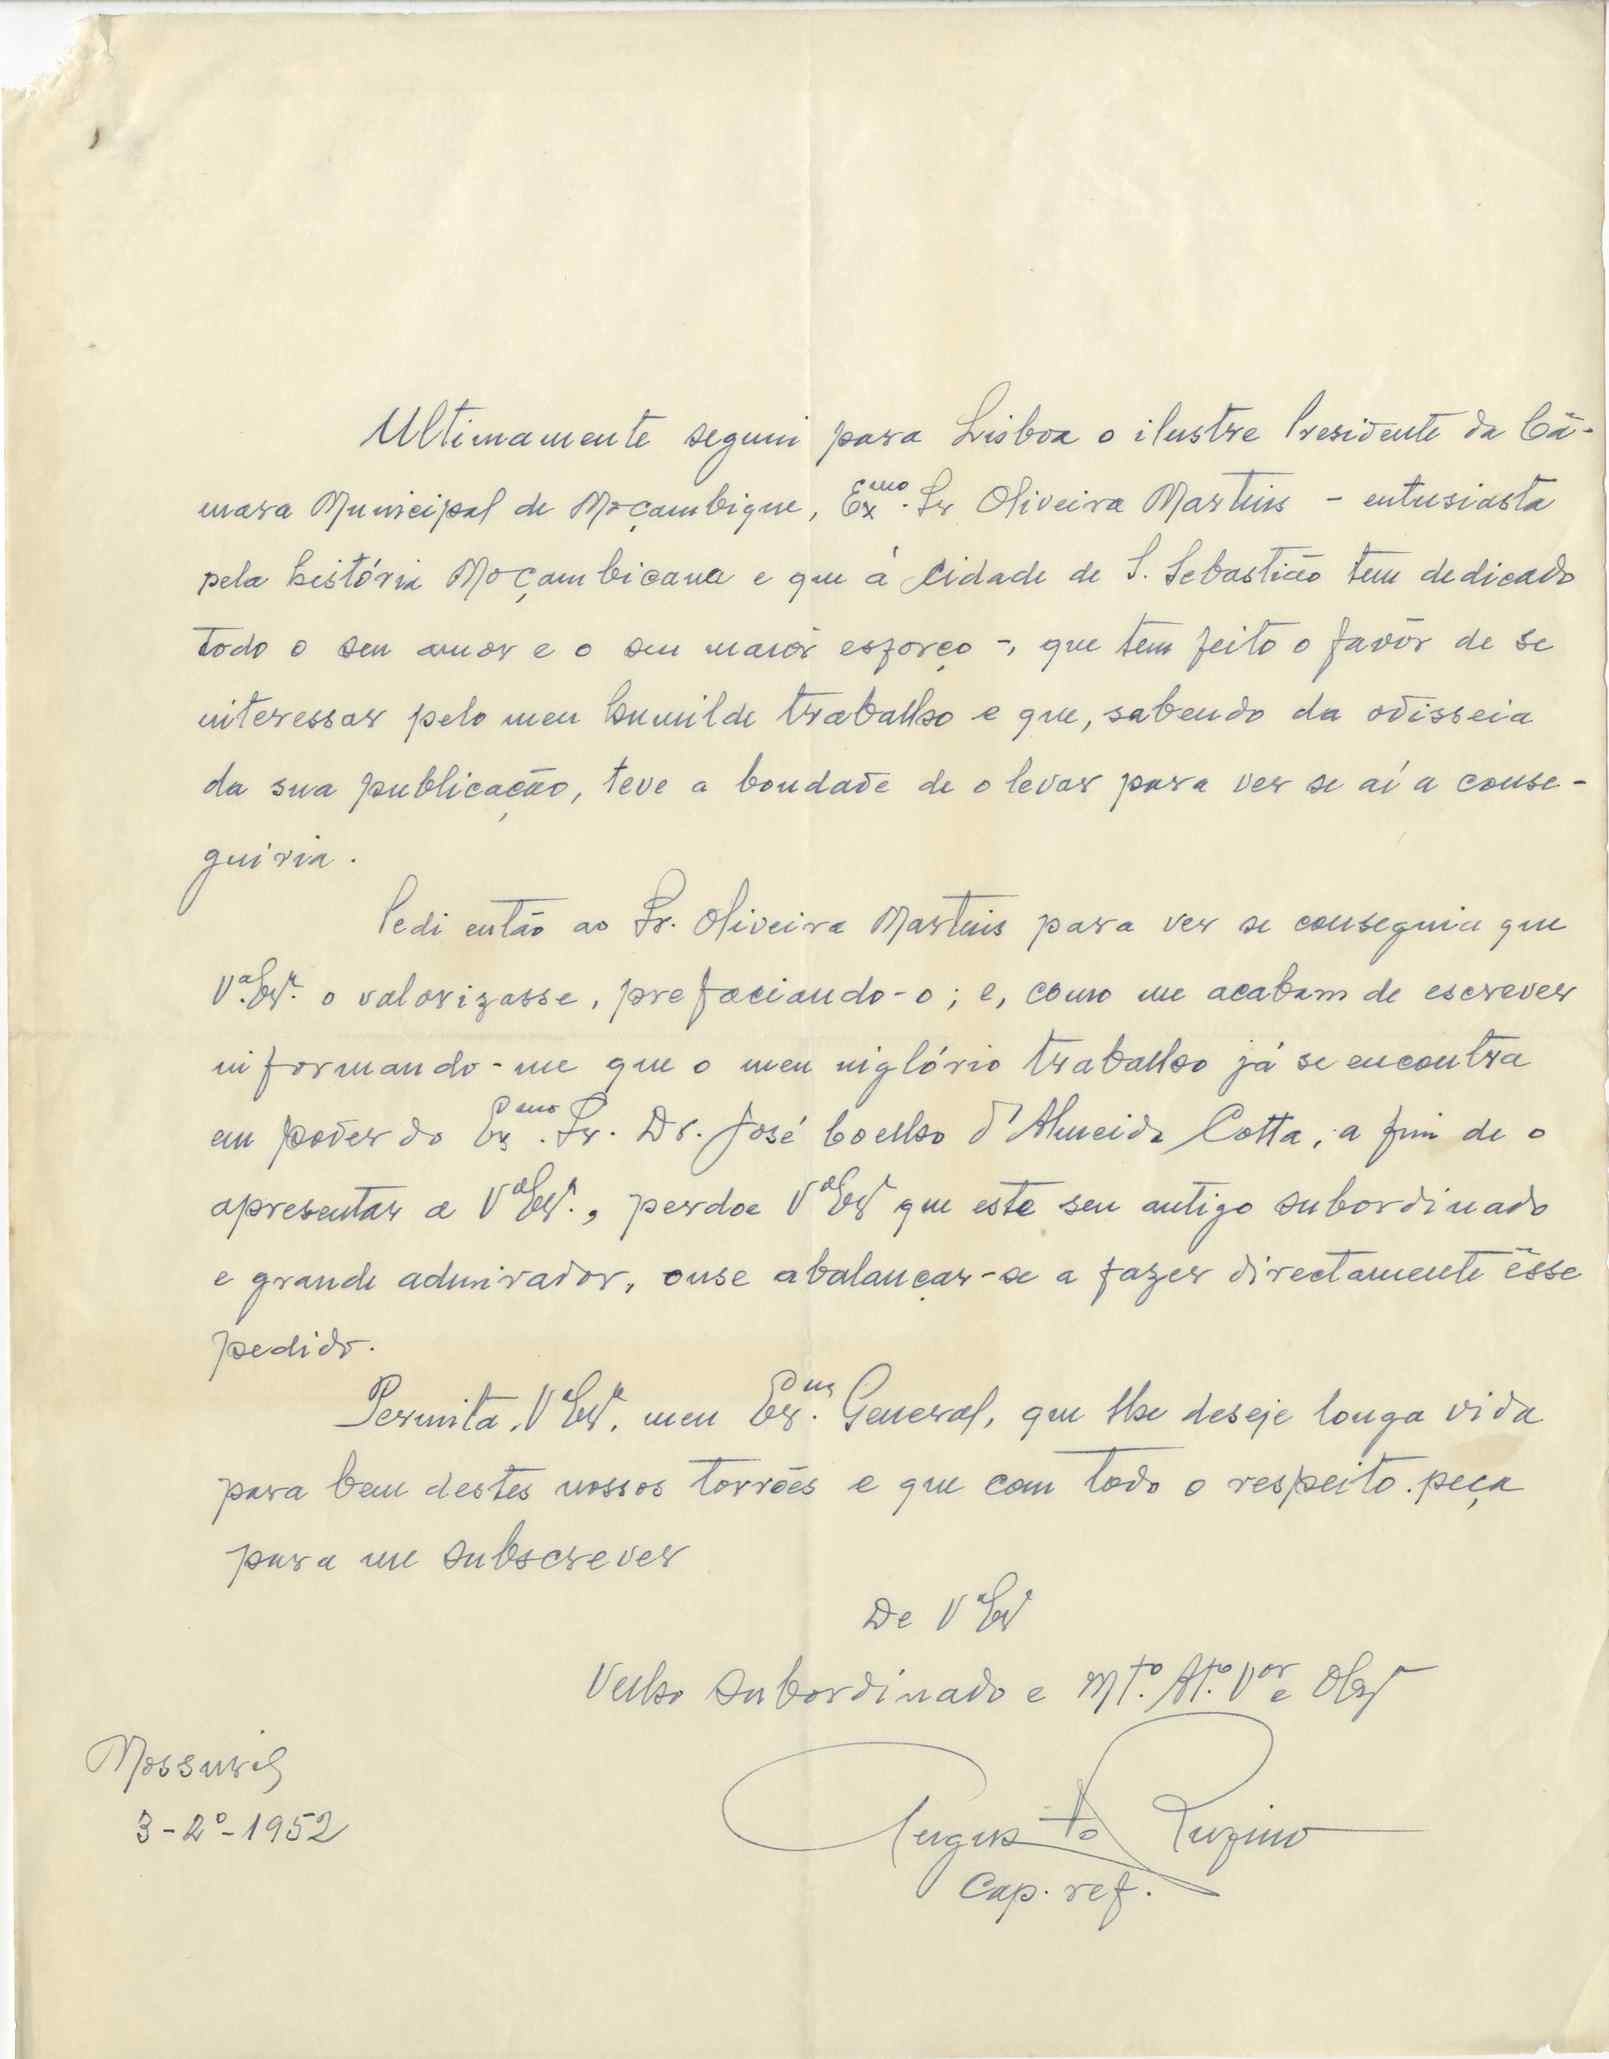 Ultimamente seguiu para Lisboa o ilustre Presidente da Câ-
mara Municipal de Moçambique, Ex.mo Sr Oliveira Martins - entusiasta
pela história Moçambicana e que à Cidade de S. Sebastião tem dedicado
todo o seu amor e o seu maior esforço -, que tem feito o favôr de se
interessar pelo meu humilde trabalho e que, sabendo da odisseia
da sua publicação, teve a bondade de o levar para ver se aí a conse-
guiria.
Pedi então ao Sr. Oliveira Martins para ver se conseguia que
V.ª Ex.ª o valorizasse, prefaciando-o; e, como me acabam de escrever
informando-me que o meu inglório trabalho já se encontra
em poder do Ex.mo Sr. Dr. José Coelho d'Almeida Cotta, a fim de o
apresentar a Vª Exª., perdoe Vª Exª que este seu antigo subordinado
e grande admirador, ouse abalançar-se a fazer directamente êsse
pedido.
Permita, Vª Exª, meu Ex.mo General, que lhe deseje longa vida
para bem destes nossos torrões e que com todo o respeito peça
para me subscrever
De Vª Exª
Velho subordinado e Mt.º At.º V.or e Obgº
Mossuril
3-2º-1952
Cap. ref.